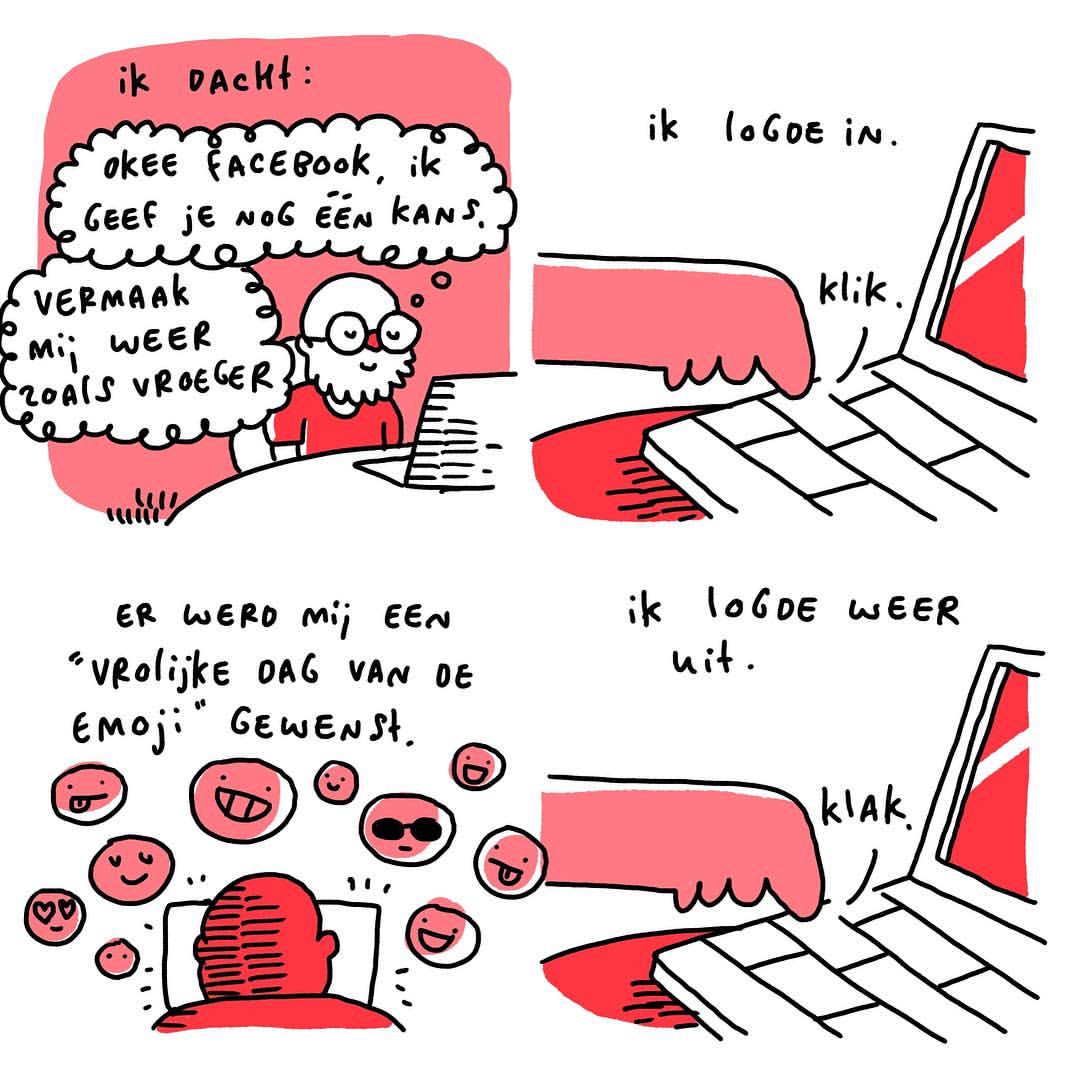 ik DACHt:
OKEE FACEBOOK, ik
GEEF jE NOG ËËN KANS.
VERMAAK
mij WEER
ZOALS VROEGER
ik loGDE iN.
klik.
ER WERD mij EEN
"VROlijKE DAG VAN DE
EMOji" GEWENSt.
ik loGDE WEER
uit.
klAK.